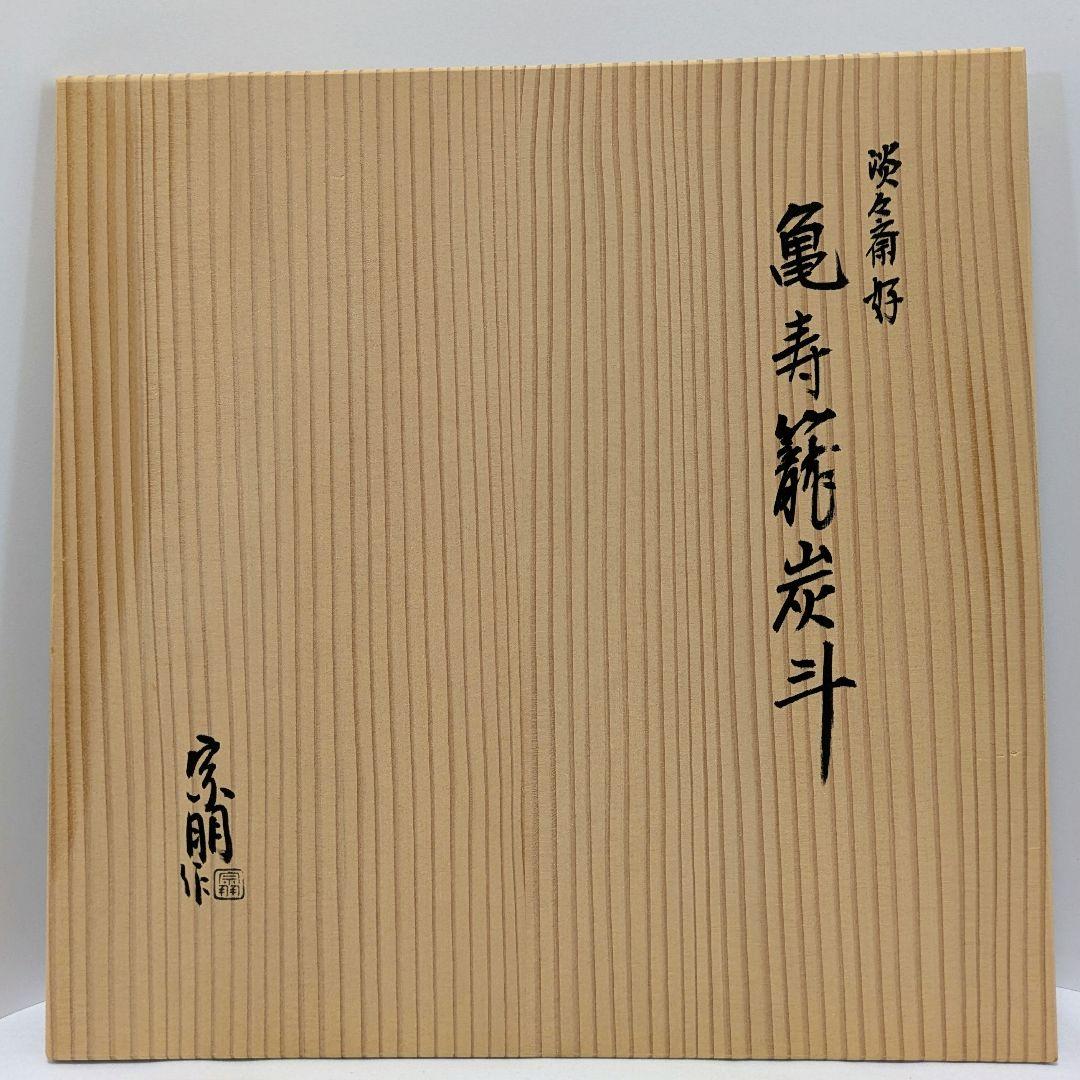 淡々斎好
亀寿籠炭斗
宗朋作